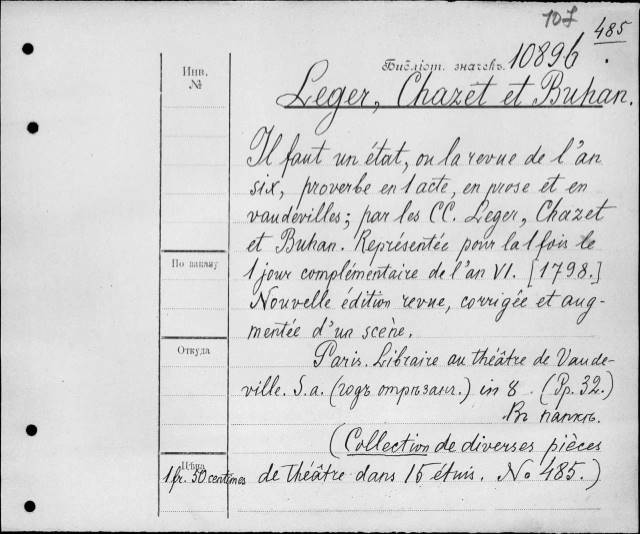 107
485
Библіот. значекъ. 10896.
Инв.
№
Leger, Chazet et Buhan.
Il faut un état, ou la revue de l'an
six, proverbe en 1 acte, en prose et en
vaudevilles; par les CC. Leger, Chazet
et Buhan. Représentée pour la 1 fois le
По заказу
1 jour complémentaire de l'an VI. [1798.]
Nouvelle édition revue, corrigée et aug-
mentée d'un scène.
Откуда
Paris. Libraire au théâtre de Vaude-
ville. S.a. (годъ отрѣзанъ.) in 8. (Pp. 32.)
Въ папкѣ.
(Collection de diverses pièces
Цѣна
1 fr. 50 centimes
de théâtre dans 15 étuis. No 485.)